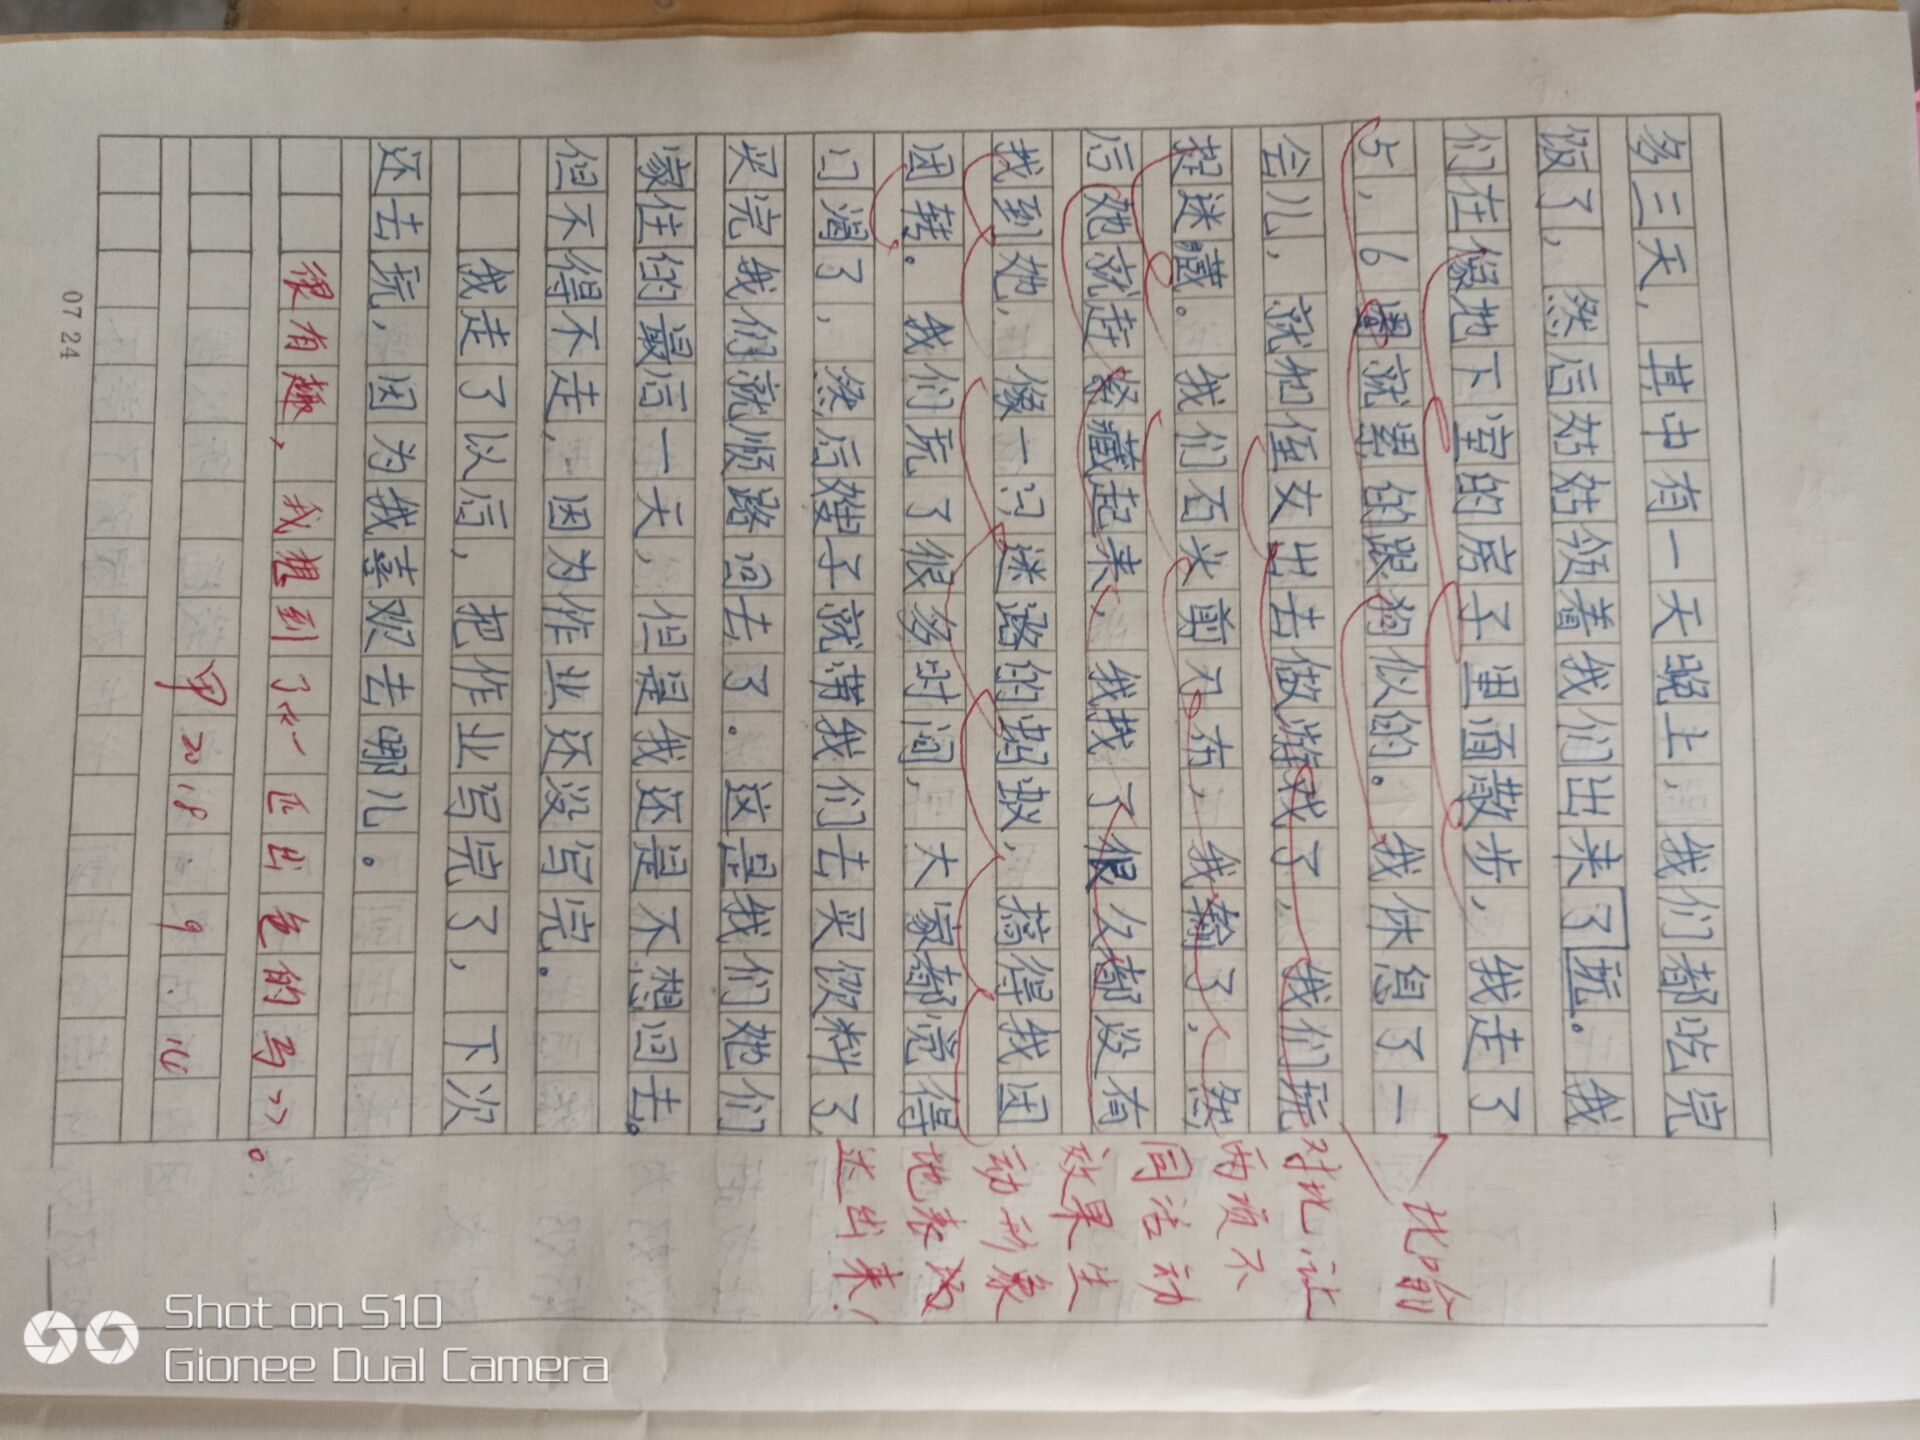 多三天，其中有一天晚上，我们都吃完
饭了，然后姑姑领着我们出来了玩。我
们在像地下室的房子里面散步，我走了
5，6圈就累的跟狗似的。我休息了一
会儿，就和侄女出去做游戏了，我们玩
捉迷藏。我们石头剪刀布，我输了，然
后她就赶紧藏起来，我找了很久都没有
找到她，像一只迷路的蚂蚁，搞得我团
团转。我们玩了很多时间，大家都觉得
口渴了，然后嫂子就带我们去买饮料了
买完我们就顺路回去了。这是我们她们
家住的最后一天，但是我还是不想回去。
但不得不走，因为作业还没写完。
我走了以后，把作业写完了，下次
还去玩，因为我喜欢去哪儿。
很有趣，我想到了《一匹出色的马》。
甲 2018.9.16
比喻
对比让
两项不
同活动
效果生
动形象
地表达
出来！
07 24
Shot on S10
Gionee Dual Camera